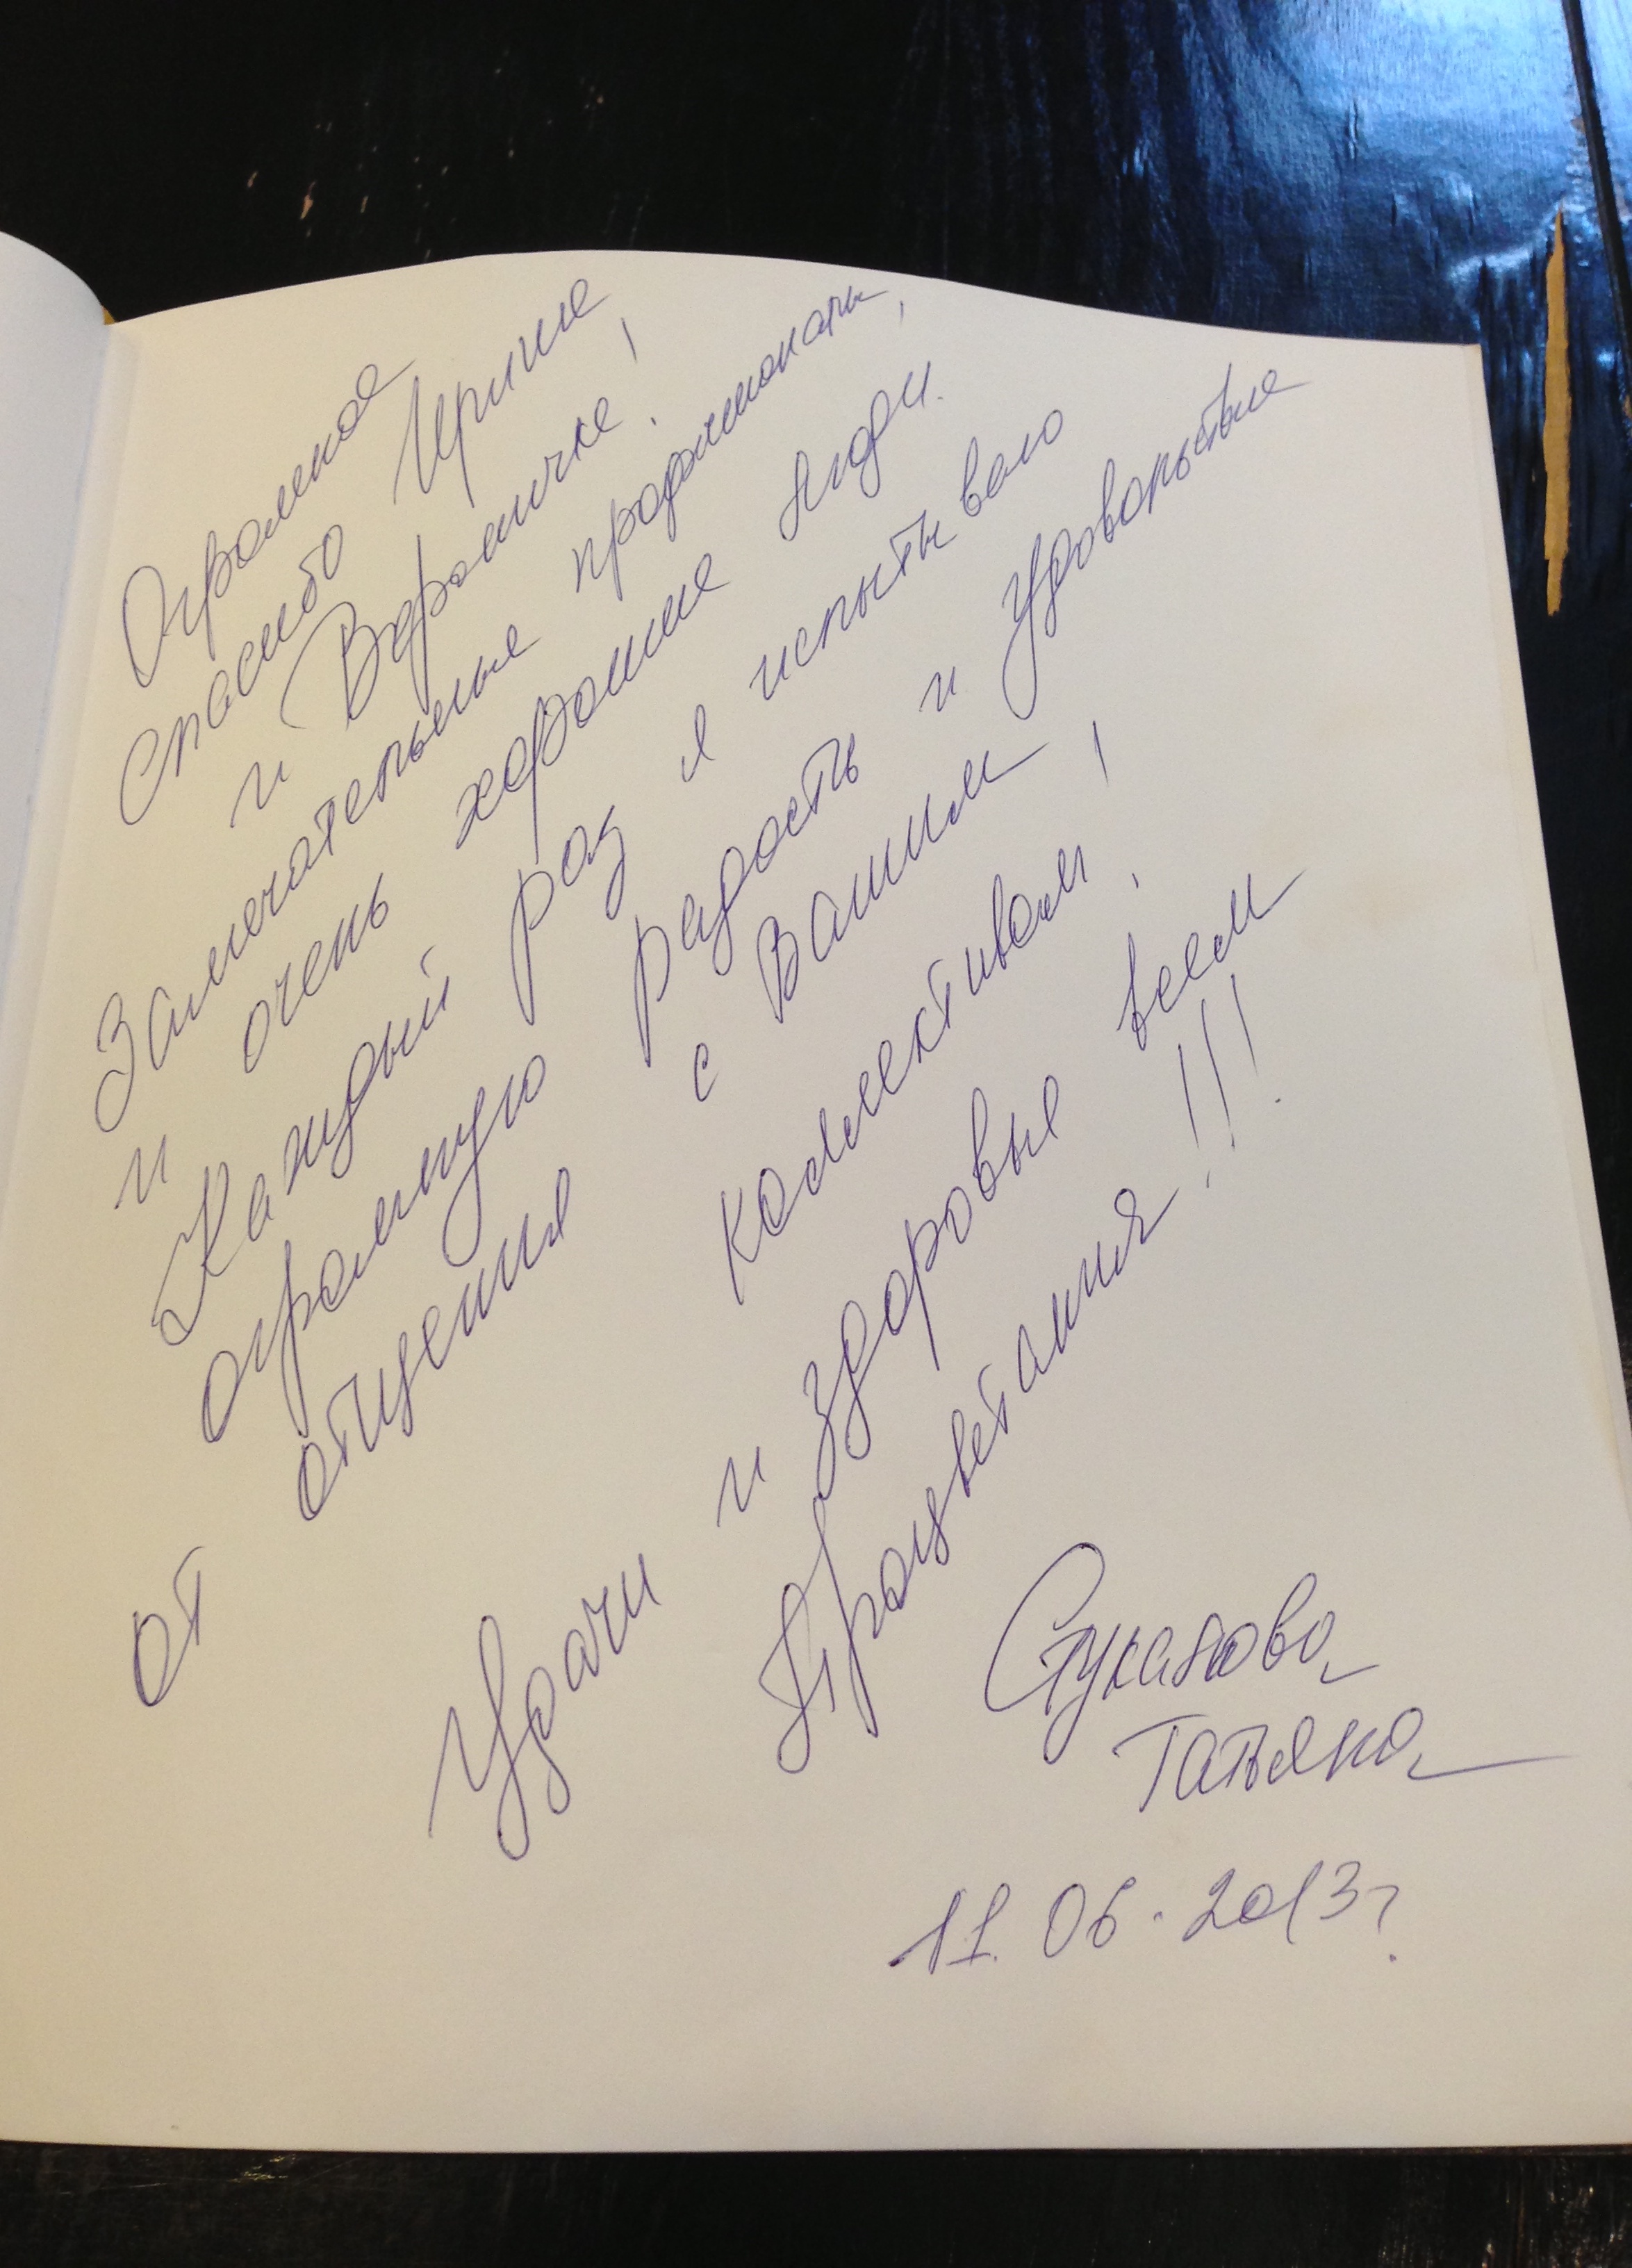 Огромное
спасибо Ирине
и Вероничке!
Замечательные профессионалы,
и очень хорошие люди.
Каждый раз я испытываю
огромную радость и удовольствие
от общения с Вашим
коллективом!
Удачи и здоровья всем
Процветания!!!
Татьяна
11.06.2013г.